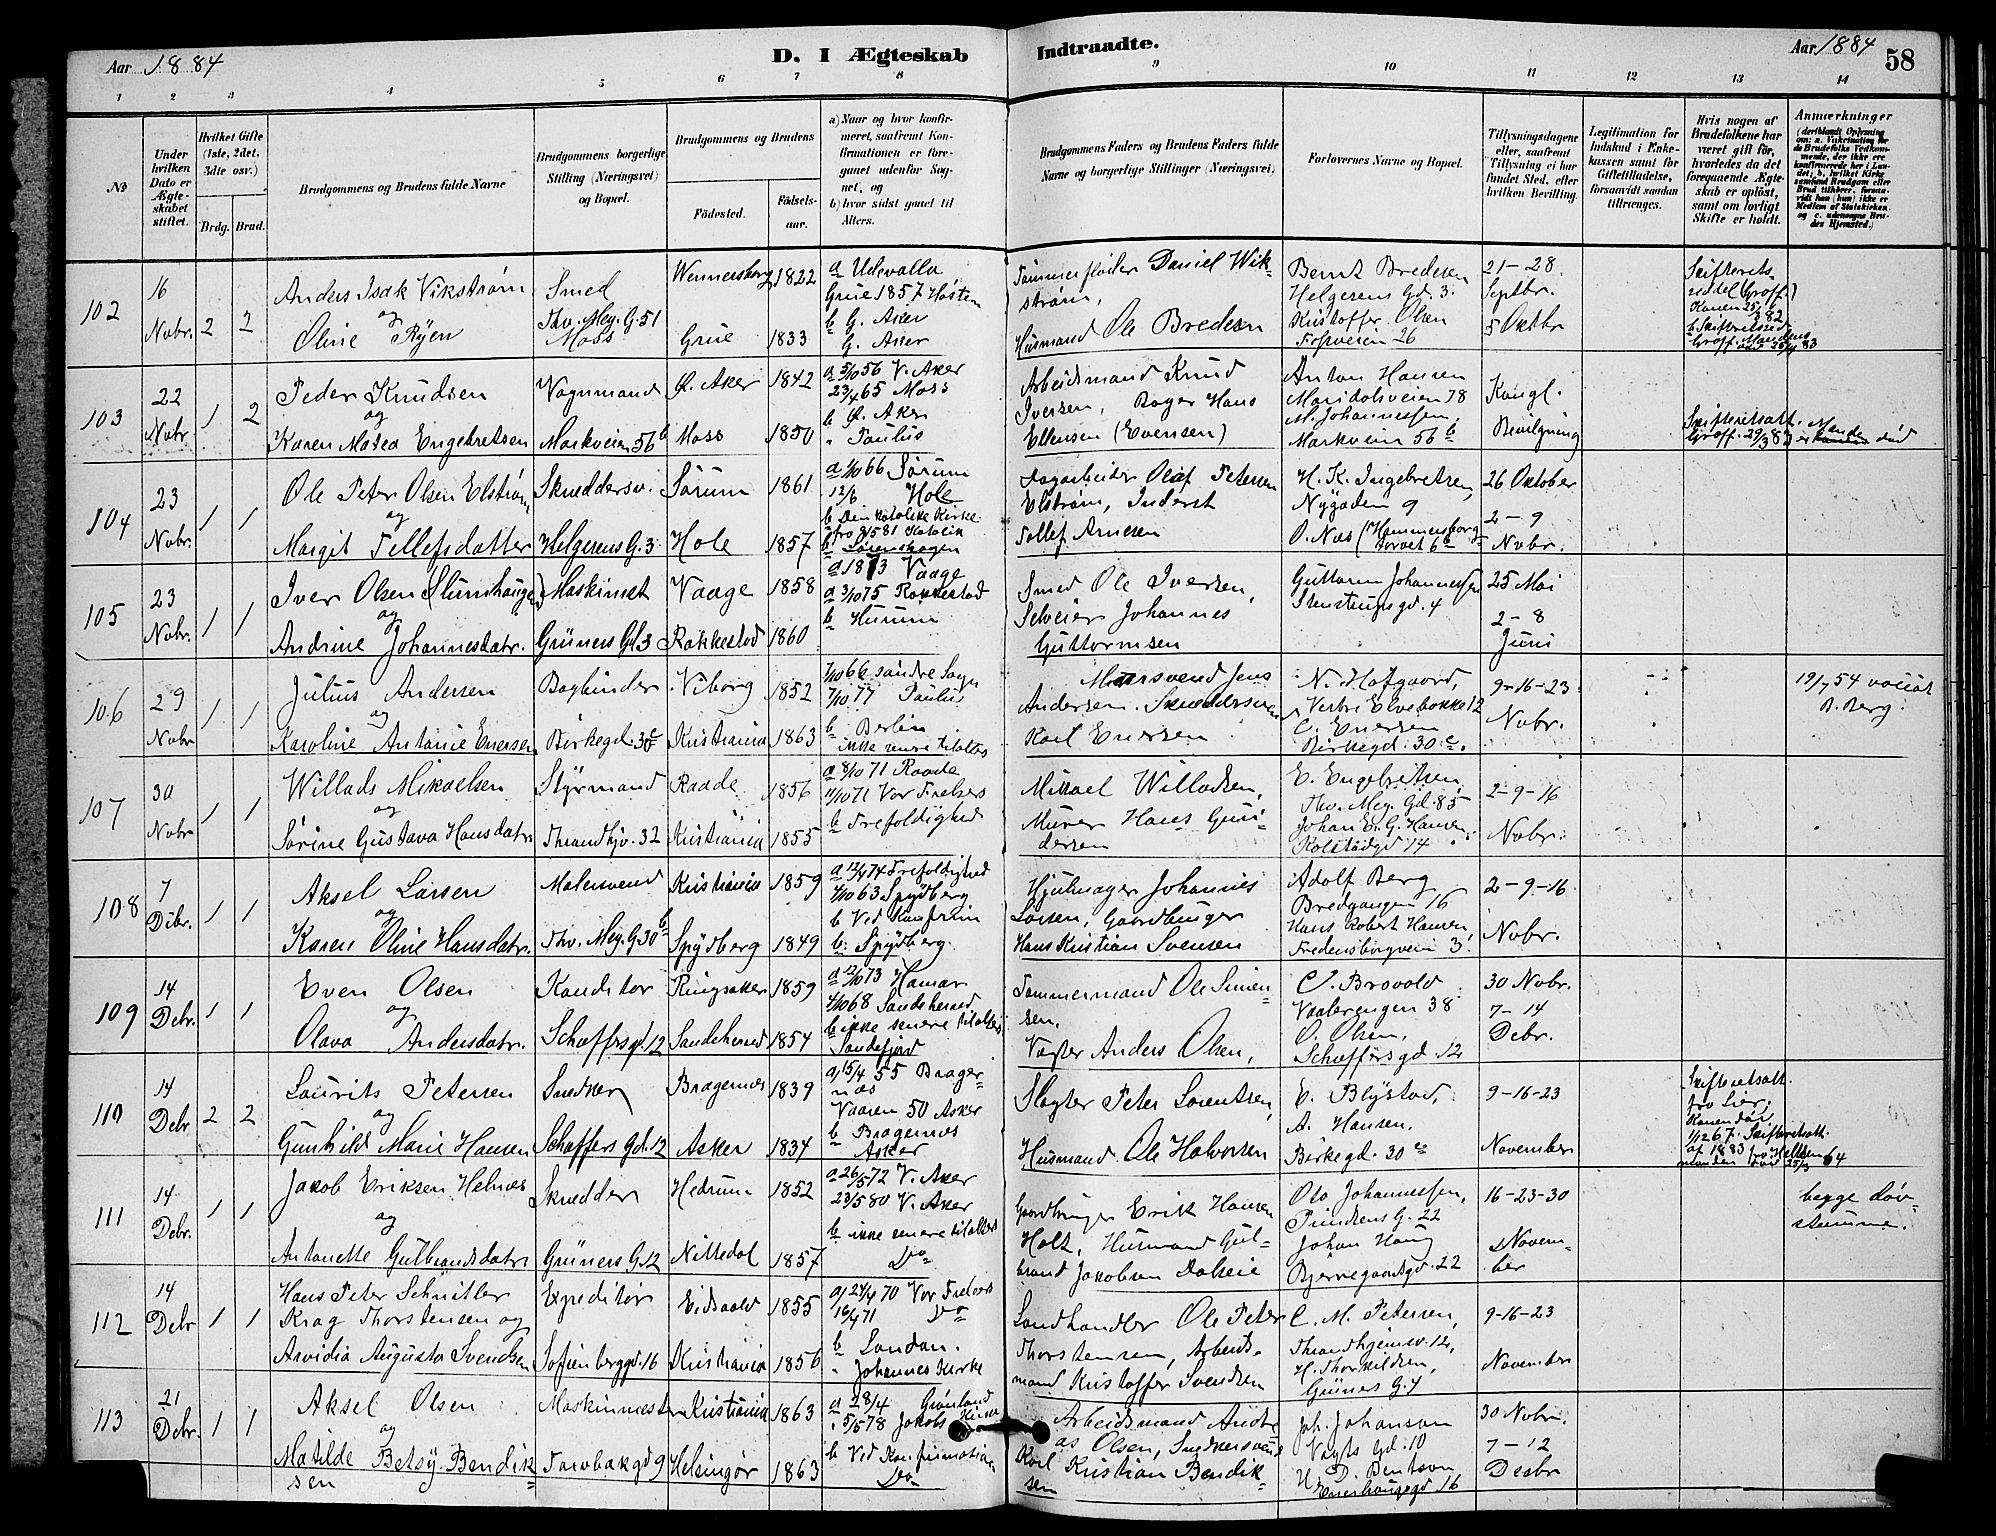 Aar 1884
D. I Ægteskab
Indtraadte.
Aar 1884
58
1 2 3 4 5 6 7 8 9 10 11 12 13 14
№
Under hvilken Dato er Ægteskabet stiftet.
Hvilket Gifte (1ste, 2det, 3dte osv.)
Brdg. Brud.
Brudgommens og Brudens fulde Navne
Brudgommens borgerlige Stilling (Næringsvei) og Bopæl.
Brudgommens og Brudens
Fødested.
Fødselsaar.
a) Naar og hvor konfirmeret, saafremt Konfirmationen er foregaaet udenfor Sognet, og
b) hvor sidst gaaet til Alters.
Brudgommens Faders og Brudens Faders fulde Navne og borgerlige Stillinger (Næringsvei)
Forlovernes Navne og Bopæl.
Tillysningsdagene eller, saafremt Tillysning ei har fundet Sted, efter hvilken Bevilling.
Legitimation for Indskud i Enkekassen samt for Giftetilladelse, forsaavidt saadan tiltrænges.
Hvis nogen af Brudefolkene har været gift før, hvorledes da det foregaaende Ægteskab er opløst, samt om lovligt Skifte er holdt.
Anmærkninger
102
16 Novbr. 2 2
Anders Isak Vikstrøm
og
Oline Ryen
Smed
Thv. Mey. G. 51
Moss
Wennersborg 1822
Grue 1833
a Udevalla
Grue 1857 Høsten
b G. Aker
G. Aker
Tømmerfløder Daniel Wikstrøm,
Husmand Ole Bredesen
Bernt Bredesen
Helgesens Gd. 3.
Kristoffer Olsen
Fossveien 26
21-28. Septbr.
5 Oktbr
103
22 Nobr. 1 2
Peder Knudsen
og
Karen Matea Engebretsen
Vognmand
Markveien 56 b
Ø. Aker 1842
Moss 1850
a 5/10 56 V. Aker
23/4 65 Moss
b Ø. Aker
" Paulus
Arbeidsmand Knud
Iversen, Bager Hans
Ellensen (Evensen)
Anton Hansen
Maridalsveien 78
M. Johannessen,
Markveien 56 b
Kongl.
Bevilgning
104
23 Nobr. 1 1
Ole Peter Olsen Elstrøm
og
Margit Tellefsdatter
Skræddersv.
Helgesens G. 3
Sørum 1861
Hole 1857
Sørum
Hole
b Den katolske Kirke
Dagarbeider Olaf Petersen
Elstrøm, Inderst
Tollef Arnesen
H. K. Ingebretsen,
Nygaden 9
O. Næs (Hammersborg
Torvet 6 b
26 Oktober
2-9 Nobr.
105
23 Nobr. 1 1
Iver Olsen (Slumhaugen)
og
Andrine Johannesdatr.
Maskinist
Grüners Gd. 3
Vaage 1858
Rakkestad 1860
a 1873 Vaage
a 3/10 75 Rakkestad
b Hurum
Smed Ole Iversen,
Selveier Johannes
Guttormsen
Guttorm Johannessen
Stenstrups gd. 4
25 Mai
2-8 Juni
106
29 Nobr 1 1
Julius Andersen
og
Karoline Antonie Enersen
Bogbinder
Birkegd. 30 c
Viborg 1852
Kristiania 1863
7/10 66 søndre Sogn
7/10 77 Paulus
b Berlin
ikke senere tilalters
Mursvend Jens
Andersen. Skræddersvend
Karl Enersen
N. Hofgaard,
Vestre Elvebakke 12
C. Enersen
Birkegd. 30 c.
9-16-23
Nobr.
B. Berg.
107
30 Nobr 1 1
Willads Mikaelsen
og
Sørine Gustava Hansdatr.
Styrmand
Throndhjv. 32
Raade 1856
Kristiania 1855
a 8/10 71 Raade
11/10 71 Vor Frelsers
b Trefoldighed
Mikael Willadsen,
Murer Hans Gundersen
E. Engebretsen
Thv. Mey. Gd. 85
Johan E. G. Hansen.
Kolstadgd 14
2-9-16
Nobr.
108
7 Dibr. 1 1
Aksel Larsen
og
Karen Oline Hansdatr.
Malersvend
Thv. Mey. G. 30 b
Kristiania 1859
Spydberg 1849
Trefoldighed
4/10 63 Spydberg
b Ved Konfirm
b: Spydberg.
Hjulmager Johannes
Larsen, Gaardbruger
Hans Kristian Svensen
Adolf Berg
Bredgangen 16
Hans Robert Hansen,
Fredensborgveien 3.
2-9-16
Nobr.
109
14 Debr. 1 1
Even Olsen
og
Olava Andersdatr.
Konditor
Schæffersgd 12
Ringsaker 1859
Sandeherred 1854
a 12/10 73 Hamar
4/10 68 Sandeherred
b ikke senere tilalters
Sandefjord
Tømmermand Ole Simensen.
Vægter Anders Olsen,
C. Brovold
Vaalerengen 38
O. Olsen,
Schæffersgd. 12
30 Nobr.
7-14
Debr.
110
14 Debr 2 2
Laurits Petersen
og
Gunhild Marie Hansen
Snedker
Schæffers Gd. 12
Bragernæs 1839
Asker 1834
a 15/4 55 Bragernæs
Vaaren 50 Asker
b Bragernæs
Asker
Slagter Peter Lorentsen,
Husmand Ole Halvorsen
E. Blystad,
A. Hansen,
Birkegd. 30 c
9-16-23
November
Skifteretsatt.
fra Lier,
111
14 Debr. 1 1
Jakob Eriksen Helnæs
og
Antonette Gulbrandsdatr.
Skrædder
Grüners G. 12
Hedrum 1852
Nittedal 1857
a 26/5 72 V. Aker
23/5 80 V. Aker
b ikke senere tilalters
Do
Gaardbruger Erik Hansen
Holt, Husmand Gulbrand Jakobsen Dalseie
Ole Johannessen,
Johan Haug
Bjerregaardsgd. 22
16-23-30
November
begge døvstumme.
112
14 Debr 1 1
Hans Peter Schnitler
Krag Thorstensen og
Arvidia Augusta Svendsen
Expeditør
Sofienberggd. 16
Eidsvold 1855
Kristiania 1856
a) 24/4 70 Vor Frelsers
16/4 71 Do
b London.
" Johannes Kirke
Landhandler Ole Peter
Thorstensen, Arbeidsmand Kristoffer Svendsen
C. M. Petersen,
Throndhjemsv. 12,
H. Thorkildsen,
Grünes G. 4
9-16-23
November
113
21 Debr. 1 1
Aksel Olsen
og
Matilde Betsy Bendiksen
Maskinmester
Farvbakgd 9
Kristiania 1863
Helsingør 1863
a 28/4 Grønland
" 5/5 78 Jakobs Kirke
b Ved Konfirmation
Do
Arbeidsmand Andreas Olsen, Snedkersvend
Karl Kristian Bendiksen
Joh. Johanson
Vogts gd. 10
H. D. Bentsen
Enerhauggd 16
30 Nobr.
7-12
Decbr